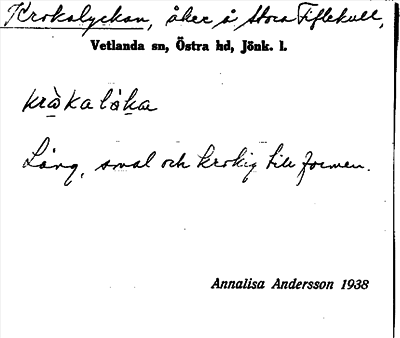 Krokalyckan, åker å Stora Fiflekull,
Vetlanda sn, Östra hd, Jönk. l.
kràkalöka
Lång, smal och krokig till formen.
Annalisa Andersson 1938